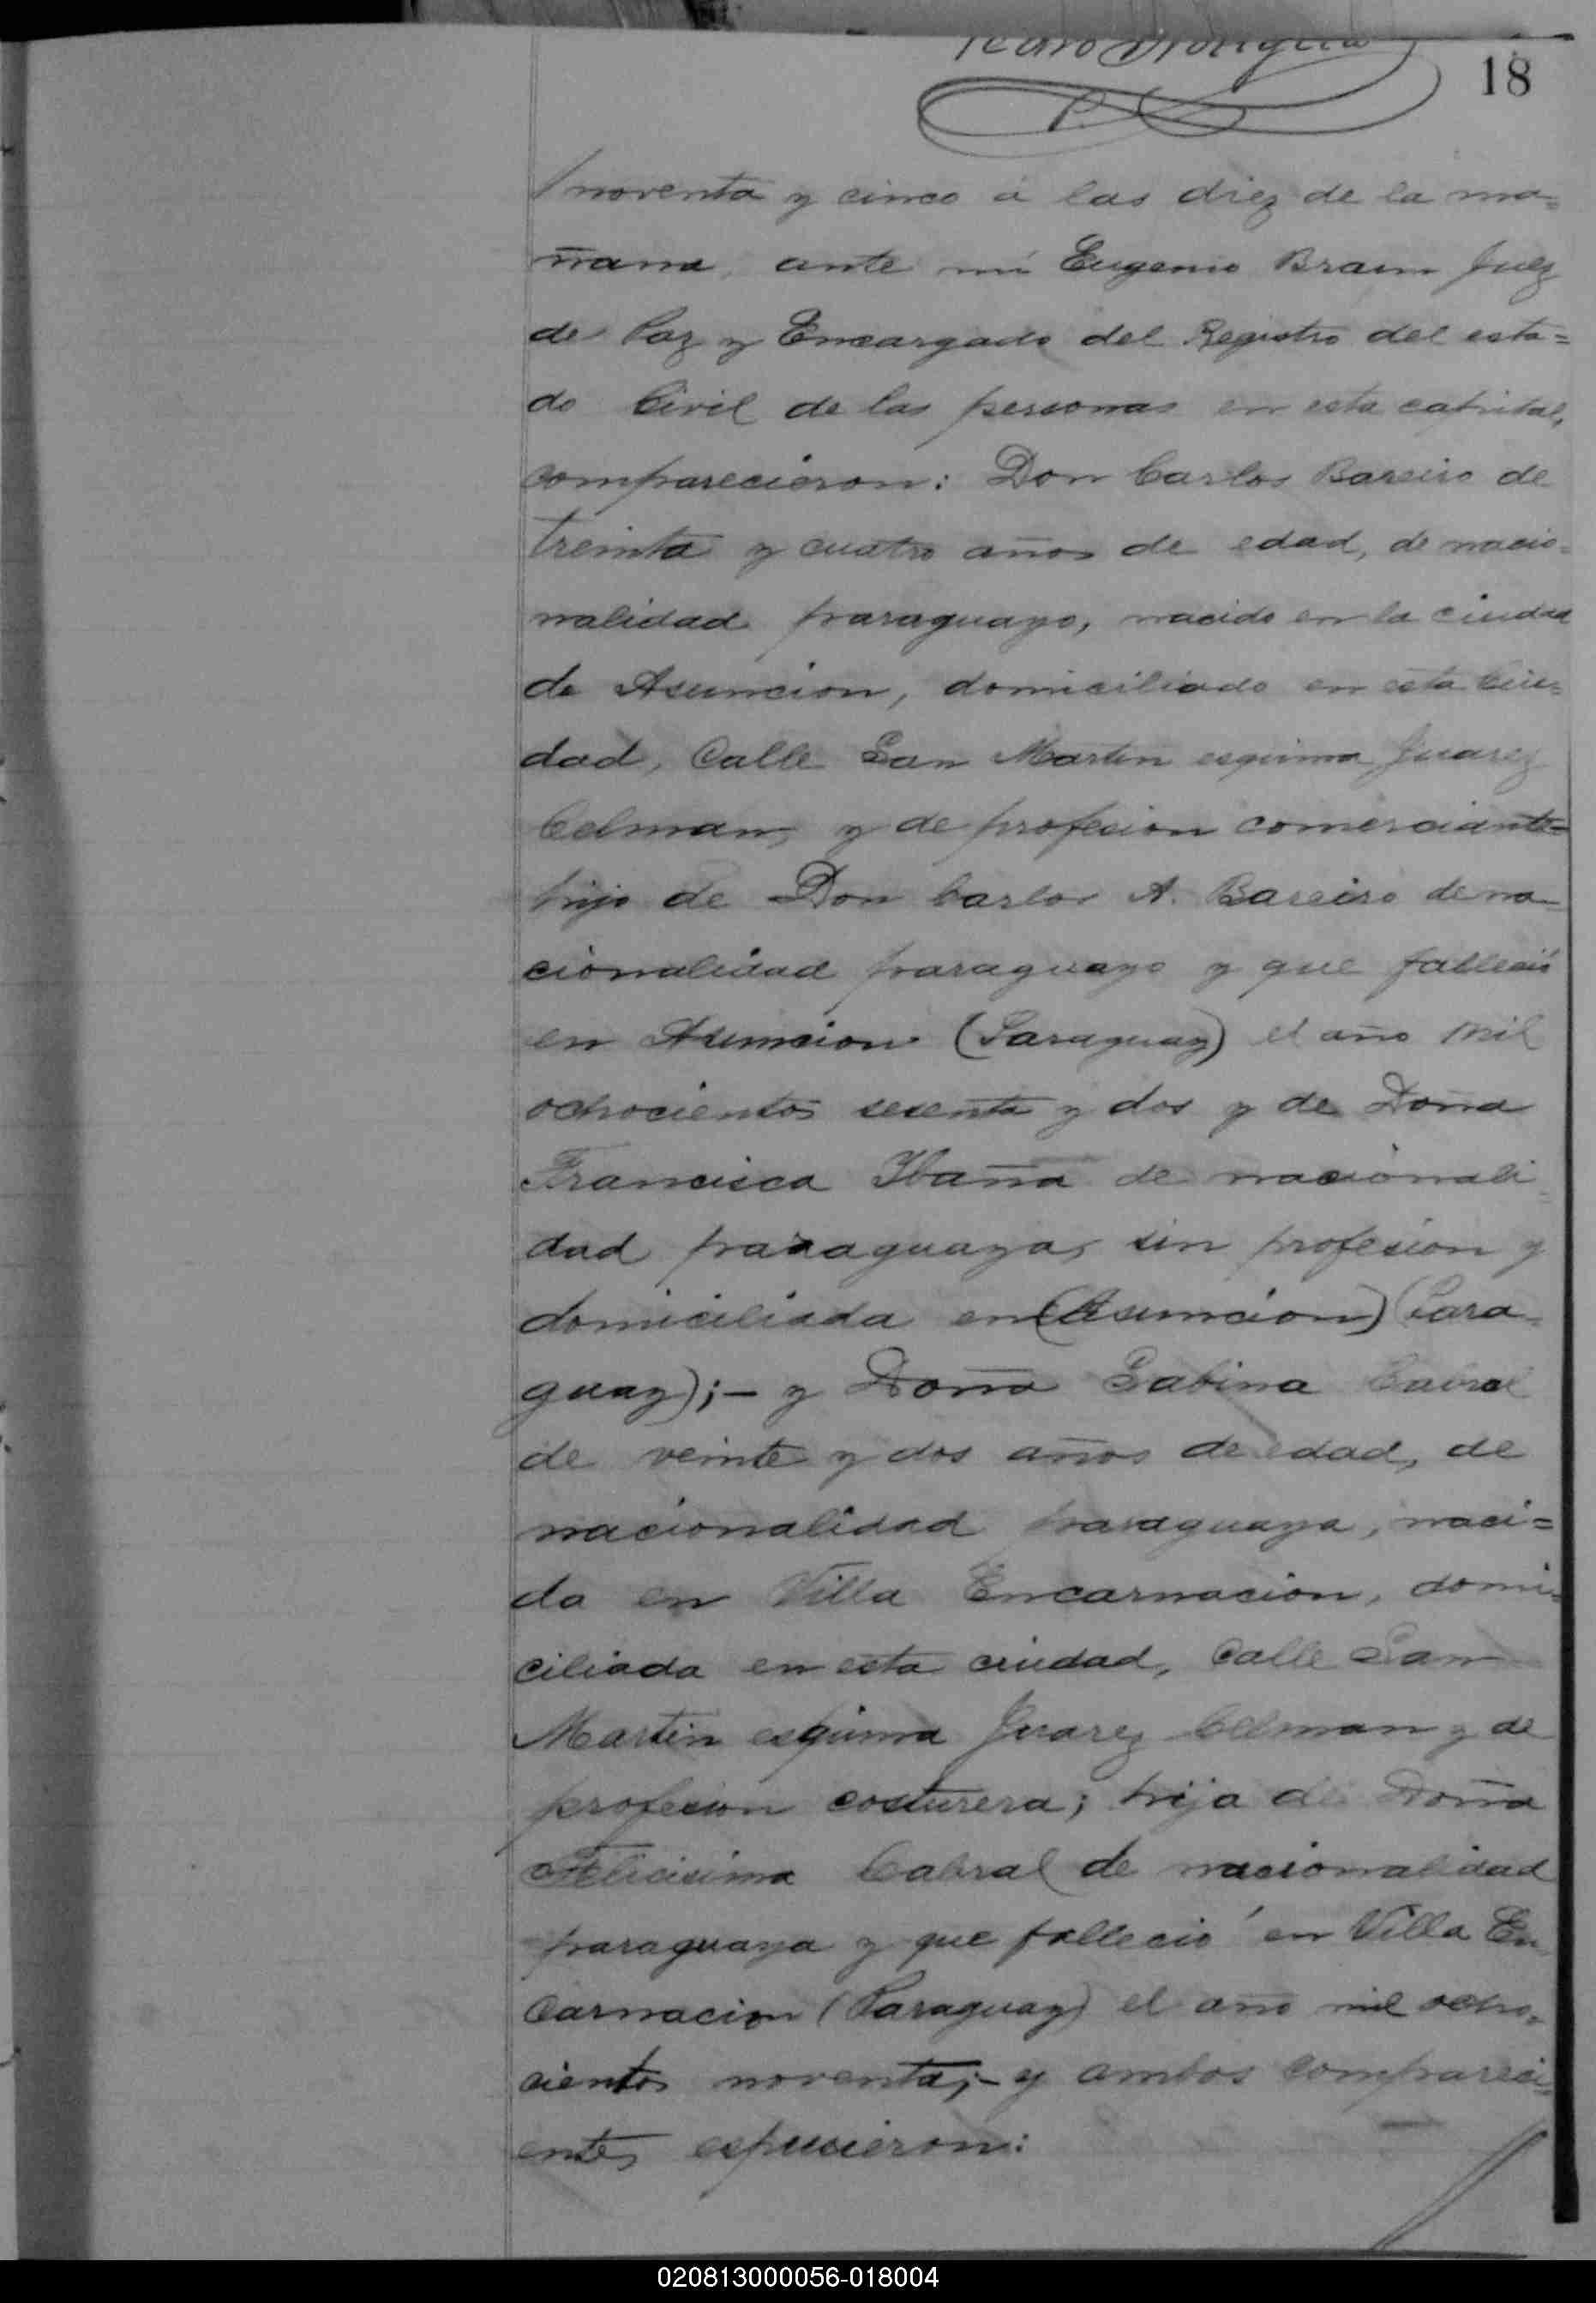 Pedro Mongelio
18
P.
noventa y cinco á las diez de la ma=
ñana, ante mí Eugenio Braun Juez
de Paz y Encargado del Registro del esta=
do Civil de las personas en esta capital,
comparecieron: Don Carlos Bareiro de
treinta y cuatro años de edad, de nacio=
nalidad paraguayo, nacido en la ciudad
de Asuncion, domiciliado en esta Ciu=
dad, Calle San Martin esquina Juarez
Celman, y de profesion comerciante-
hijo de Don Carlos A. Bareiro de na-
cionalidad paraguayo y que falleció
en Asuncion (Paraguay) el año mil
ochocientos sesenta y dos y de Doña
Francisca Ibaña de nacionali-
dad paraguaya, sin profesion y
domiciliada en (Asuncion) (Para-
guay);- y Doña Sabina Cabral
de veinte y dos años de edad, de
nacionalidad paraguaya, naci=
da en Villa Encarnacion, domi=
ciliada en esta ciudad, Calle San
Martin esquina Juarez Celman y de
profesion costurera; hija de Doña
Felicisima Cabral de nacionalidad
paraguaya y que falleció en Villa En-
carnacion (Paraguay) el año mil ocho-
cientos noventa;- y ambos compareci-
entes espusieron:
020813000056-018004